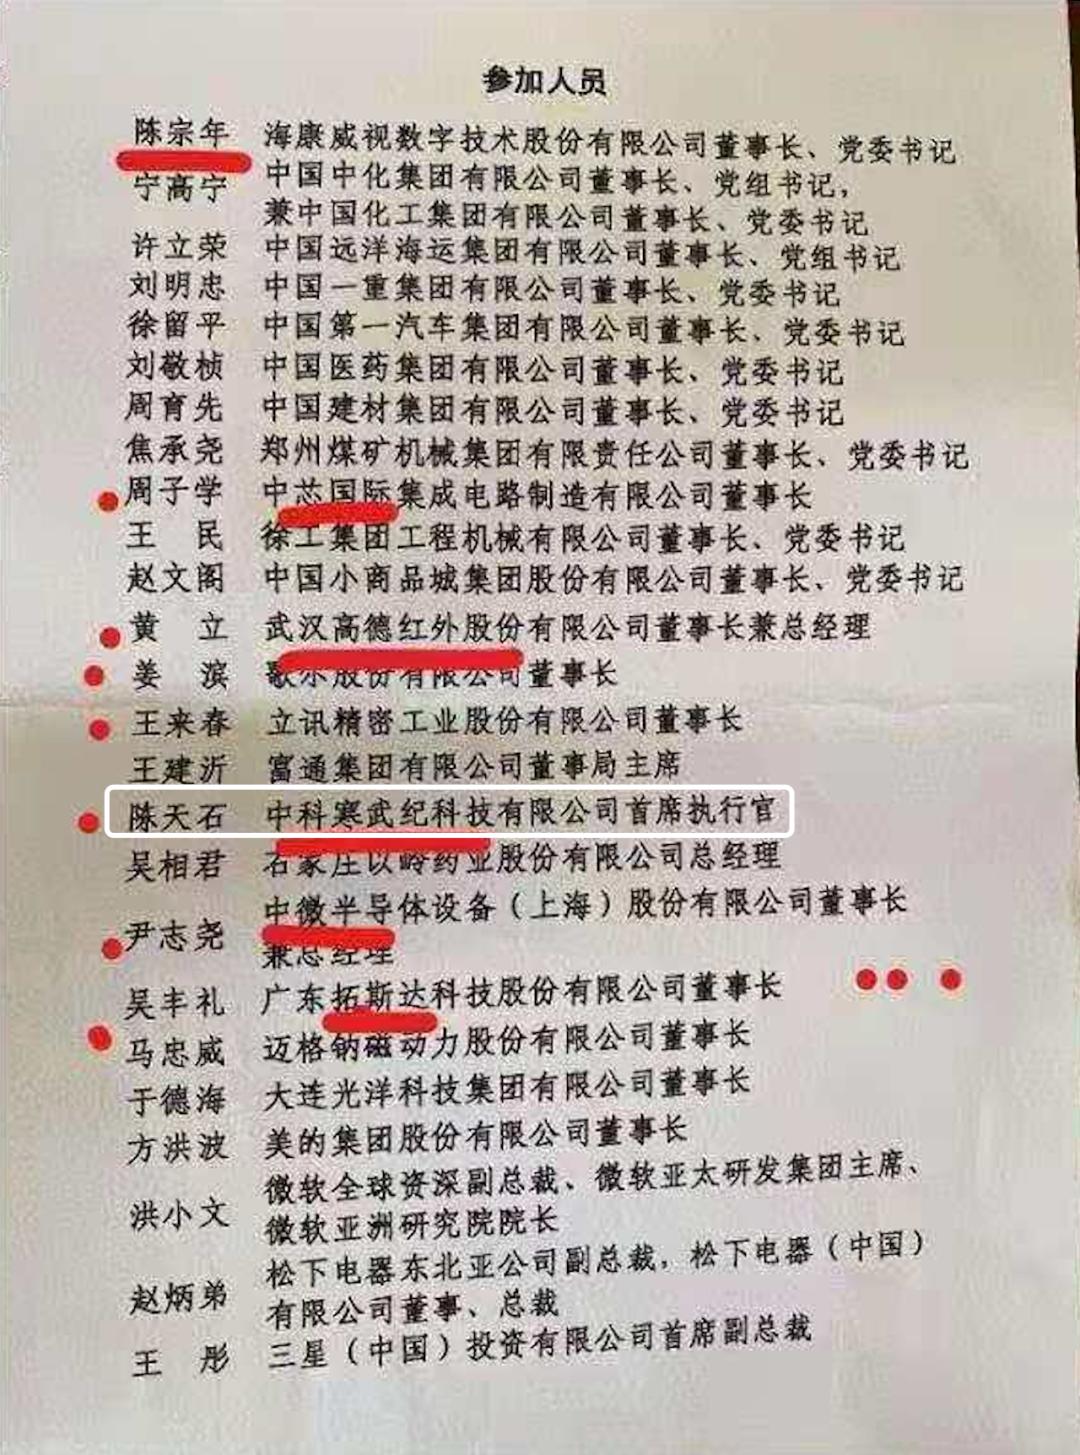 参加人员
陈宗年 海康威视数字技术股份有限公司董事长、党委书记
宁高宁 中国中化集团有限公司董事长、党组书记，
兼中国化工集团有限公司董事长、党委书记
许立荣 中国远洋海运集团有限公司董事长、党组书记
刘明忠 中国一重集团有限公司董事长、党委书记
徐留平 中国第一汽车集团有限公司董事长、党委书记
刘敬桢 中国医药集团有限公司董事长、党委书记
周育先 中国建材集团有限公司董事长、党委书记
焦承尧 郑州煤矿机械集团有限责任公司董事长、党委书记
周子学 中芯国际集成电路制造有限公司董事长
王 民 徐工集团工程机械有限公司董事长、党委书记
赵文阁 中国小商品城集团股份有限公司董事长、党委书记
黄 立 武汉高德红外股份有限公司董事长兼总经理
姜 滨 歌尔股份有限公司董事长
王来春 立讯精密工业股份有限公司董事长
王建沂 富通集团有限公司董事局主席
陈天石 中科寒武纪科技有限公司首席执行官
吴相君 石家庄以岭药业股份有限公司总经理
尹志尧 中微半导体设备（上海）股份有限公司董事长
兼总经理
吴丰礼 广东拓斯达科技股份有限公司董事长
马忠威 迈格钠磁动力股份有限公司董事长
于德海 大连光洋科技集团有限公司董事长
方洪波 美的集团股份有限公司董事长
洪小文 微软全球资深副总裁、微软亚太研发集团主席、
微软亚洲研究院院长
赵炳弟 松下电器东北亚公司副总裁，松下电器（中国）
有限公司董事、总裁
王 彤 三星（中国）投资有限公司首席副总裁